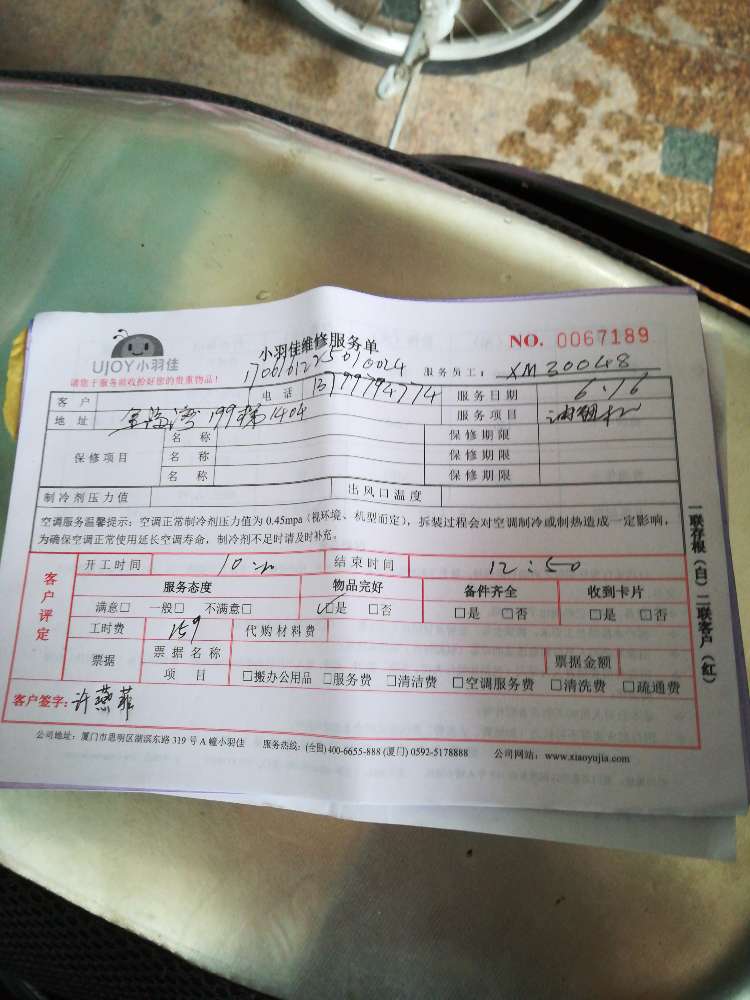 UJOY小羽佳
小羽佳维修服务单
NO. 0067189
请您于服务前收捡好您的贵重物品!
服务员工: XM30048
客 户 电 话 13799794774 服务日期 6.16
地 址 金海湾199号1404 服务项目 油烟机
保修项目 名 称 保修期限
名 称 保修期限
名 称 保修期限
制冷剂压力值 出风口温度
空调服务温馨提示:空调正常制冷剂压力值为 0.45mpa(视环境、机型而定),拆装过程会对空调制冷或制热造成一定影响,
为确保空调正常使用延长空调寿命,制冷剂不足时请及时补充。
客户评定
开工时间 结束时间 12:50
服务态度 物品完好 备件齐全 收到卡片
满意□ 一般□ 不满意□ ☑是 □否 □是 □否 □是 □否
工时费 159 代购材料费
票据 票据名称 票据金额
项 目 □搬办公用品 □服务费 □清洁费 □空调服务费 □清洗费 □疏通费
客户签字:许燕菲
公司地址:厦门市思明区湖滨东路 319 号 A 幢小羽佳 服务热线:(全国)400-6655-888 (厦门) 0592-5178888 公司网站:www.xiaoyujia.com
一联存根(白)二联客户(红)